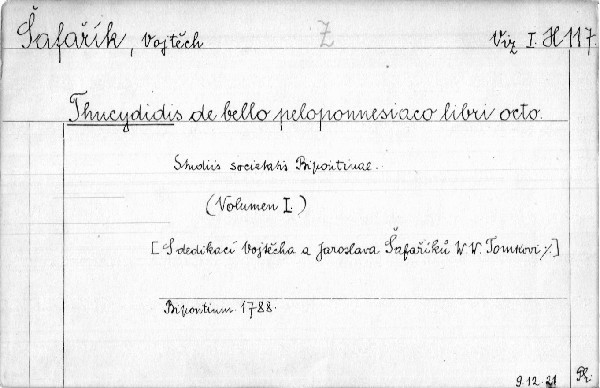 Šafařík, Vojtěch Z Viz I. H 117.
Thucydidis de bello peloponnesiaco libri octo.
Studiis societatis Bipontinae.
(Volumen I.)
[S dedikací Vojtěcha a Jaroslava Šafaříků W. W. Tomkovi %]
Bipontium 1788.
9.12.21